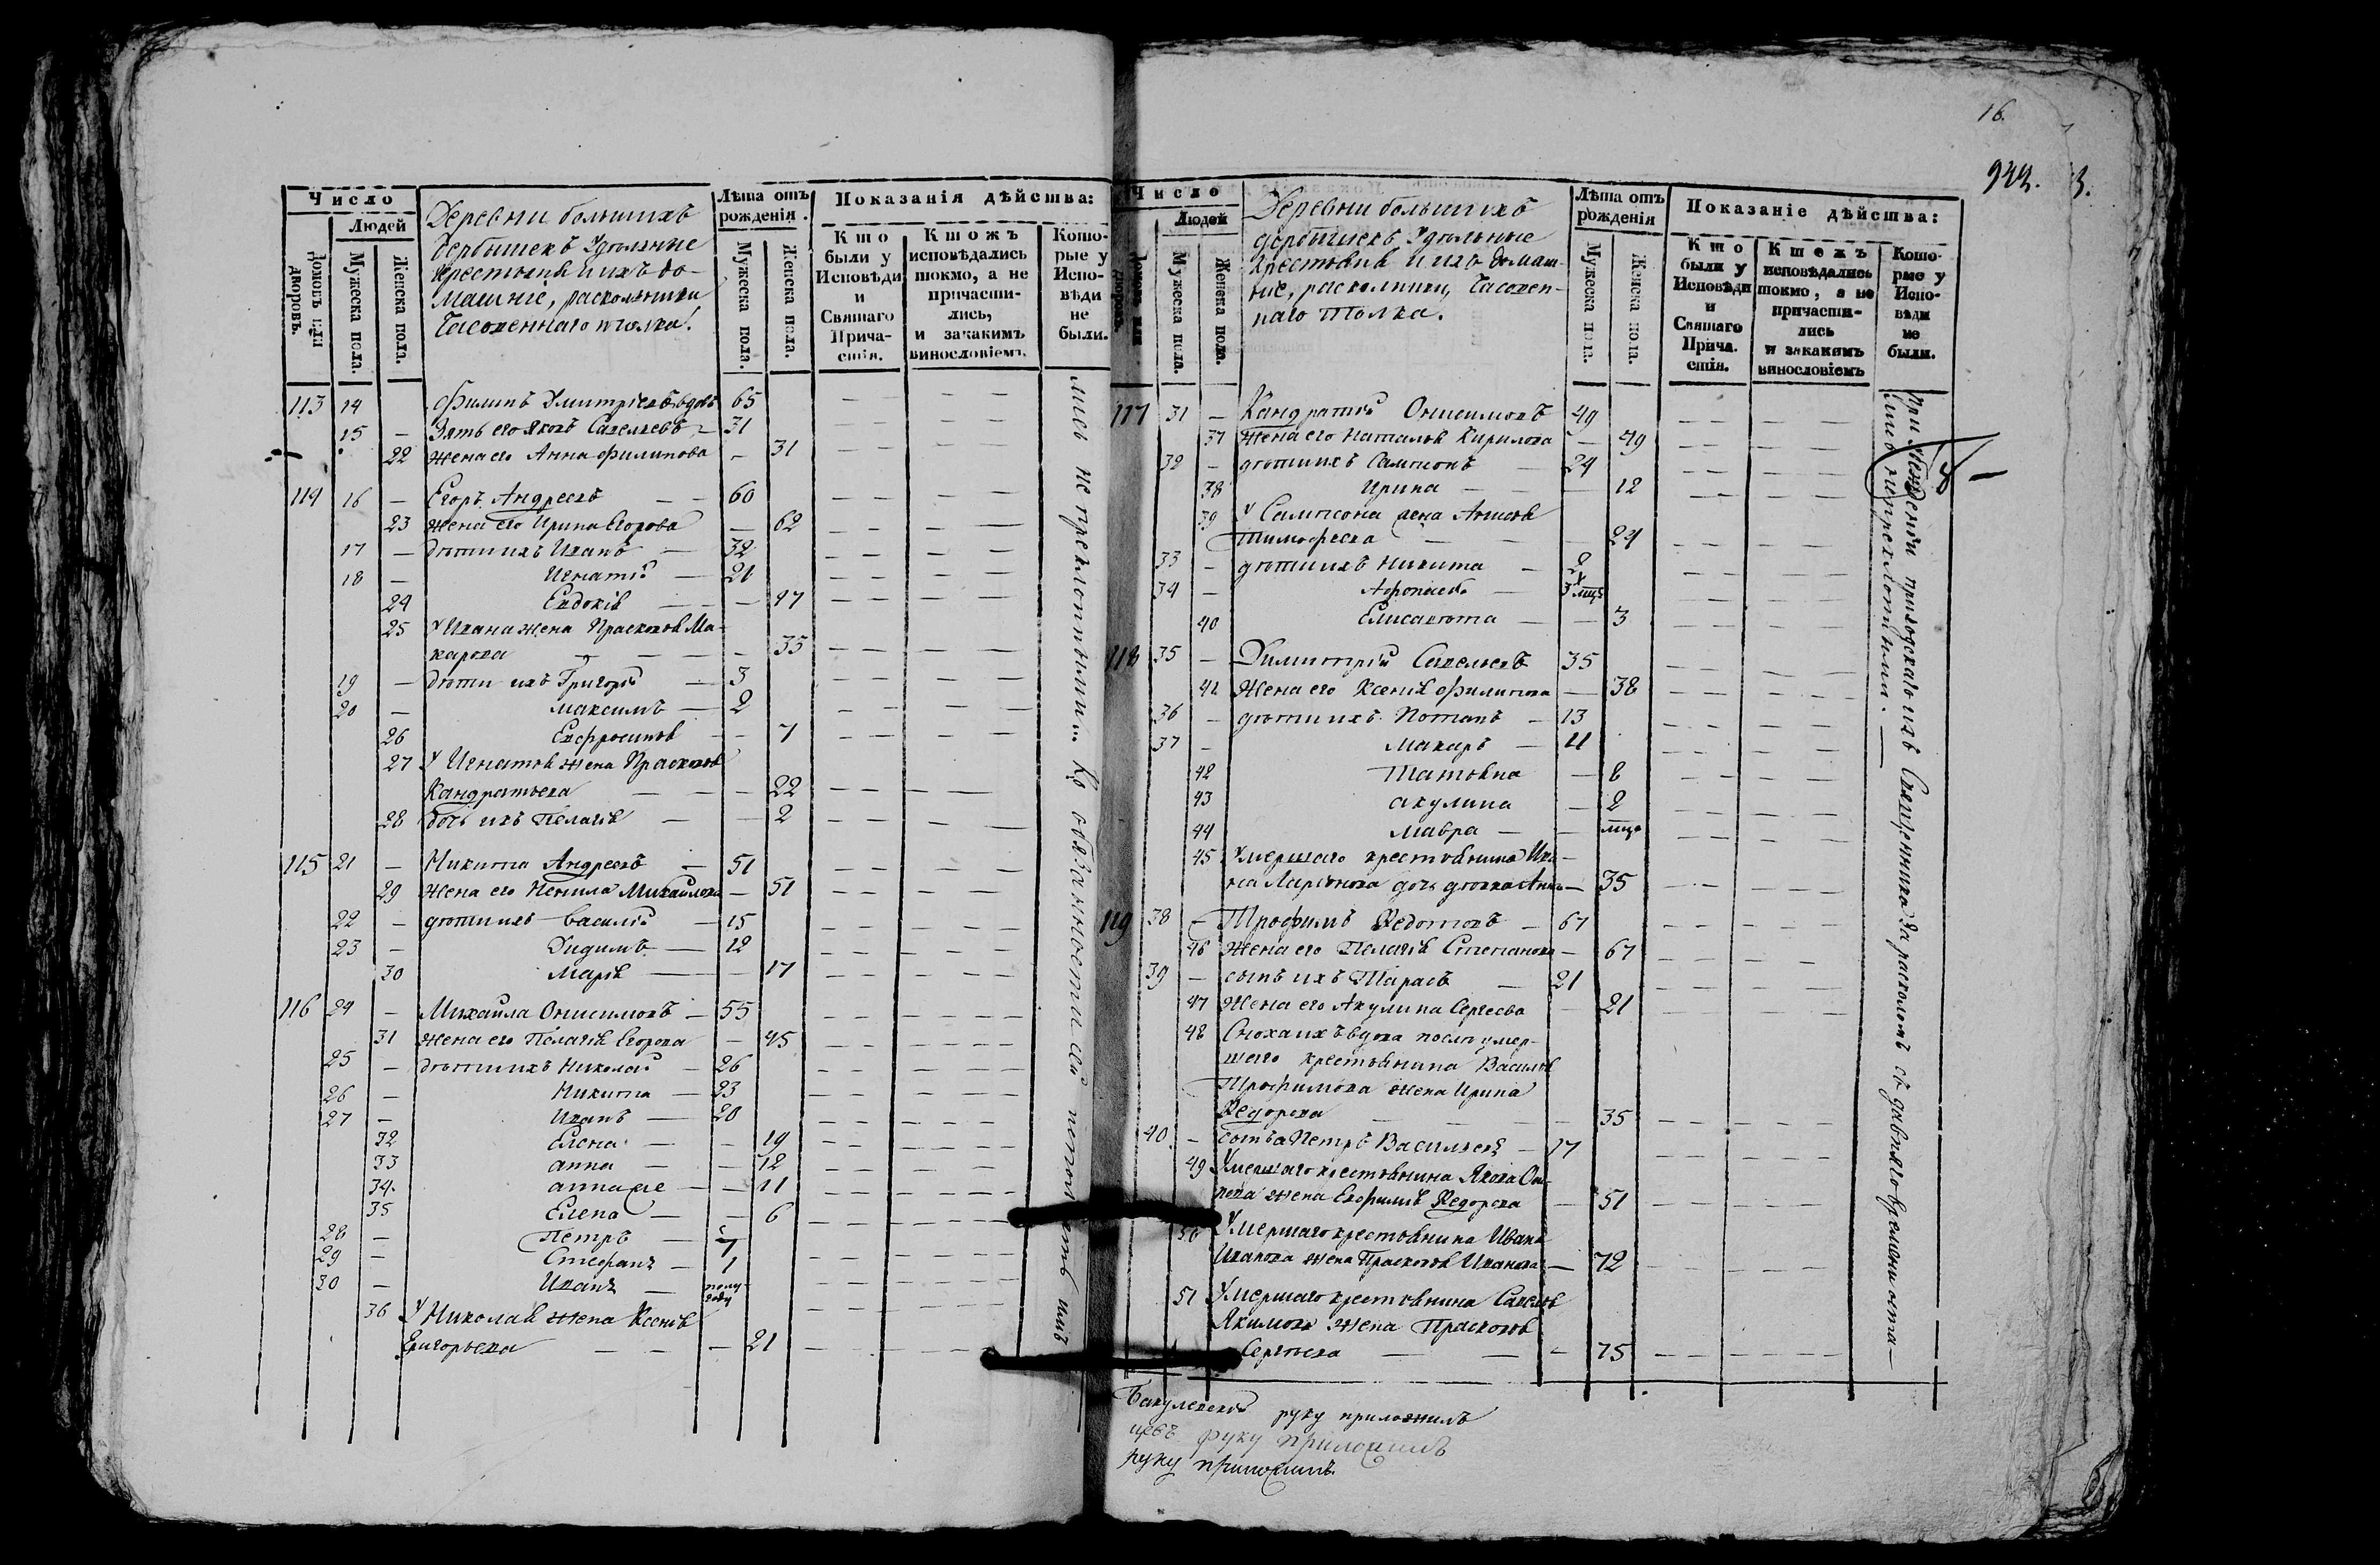 16.
944. 3.
Число
Людей
Домовъ или дворовъ.
Мужеска пола.
Женска пола.
Деревни большихъ
Дербышекъ Удѣльные
крестьяне и ихъ до-
машніе, раскольники
Часовеннаго толка.
Лѣта отъ рожденія.
Мужеска пола.
Женска пола.
Показанія дѣйства:
Кто были у Исповѣди и Святаго Причастія.
Ктожъ исповѣдались токмо, а не причастились, и закакимъ винословіемъ.
Которые у Исповѣди не были.
113 14 Филипъ Дмитріевъ вдовъ 65
15 — Зять его Яковъ Савельевъ — 31
22 Жена его Анна Филипова — 31
114 16 — Егоръ Андреевъ — — 60
23 Жена его Ирина Егорова — 62
17 — дѣти ихъ Иванъ — 32
18 — Игнатій — 21
24 Евдокія — — 17
25 У Ивана жена Прасковья Ма-
карова — — — 35
19 — дѣти ихъ Григорій — 3
20 — Максимъ — 2
26 Евфросинья — — 7
27 У Игнатья жена Прасковья
Кандратьева — — — 22
28 дочь ихъ Пелагія — — 2
115 21 — Никита Андреевъ — 51
29 Жена его Ненила Михайлова — 51
22 — дѣти ихъ Василій — 15
23 — Дидимъ — 12
30 Марія — — 17
116 24 — Михайла Онисимовъ — 55
31 Жена его Пелагія Егорова — 45
25 — дѣти ихъ Николай — 26
26 — Никита — 23
27 — Иванъ — 20
32 Елена — — 19
33 анна — — 12
34. анна же — — 11
35 Елена — — 6
28 — Петръ —
29 — Стефанъ — 1
30 — Иванъ — полу-
году
36 У Николая жена Ксенія
Григорьева — — — 21
лись не преклонными... Къ обязанности сей
Число
Людей
Домовъ или дворовъ.
Мужеска пола.
Женска пола.
Деревни большихъ
дербышекъ Удѣльные
крестьяне и ихъ домаш-
ніе, раскольники, Часовен-
наго Толка.
Лѣта отъ рожденія
Мужеска пола.
Женска пола.
Показаніе дѣйства:
Кто были у Исповѣди и Святаго Прича. стія.
Ктожъ исповѣдались токмо, а не причастились и закакимъ винословіемъ
Которые у Исповѣди не были.
117 31 — Кандратій Онисимовъ 49
37 Жена его Наталья Кирилова — 49
32 — дѣти ихъ Сампсонъ — 24
38 Ирина — — 12
39 У Сампсона жена Анисья
Тимофеева — — 24
33 — дѣти ихъ Никита — 2
34 — Афонасей — 3 мца
40 Елисавета — — 3
118 35 — Димитрій Савельевъ 35
41 Жена его Ксенія Филипова — 38
36 — дѣти ихъ Потапъ — 13
37 — Макаръ — 11
42 Татьяна — 8
43 акулина — 2
44 Мавра — — мца
45 Умершаго крестьянина Ива-
на Ларіонова дочь дѣвка Анна — 35
119 38 — Трофимъ Федотовъ — 67
46 Жена его Пелагія Степанова — 67
39 — сынъ ихъ Тарасъ — 21
47 Жена его Акулина Сергеева — 21
48 Сноха ихъ вдова послѣ умер-
шаго крестьянина Василья
Трофимова жена Ирина
Федорова — — — 35
40 — сынъ ея Петръ Васильевъ — 17
49 Умершаго крестьянина Якова Оси-
пова жена Евфимія Федорова — 51
50 Умершаго крестьянина Ивана
Иванова жена Прасковья Иванова — 72
51 Умершаго крестьянина Савелья
Якимова жена Прасковья
Сергѣева — — — 75
При увѣщеніи приходскаго ихъ Священника за расколомъ съ давняго времени оста-
лись непреклонными. —
8 —
Бакулевской руку приложилъ
руку приложилъ
руку приложилъ